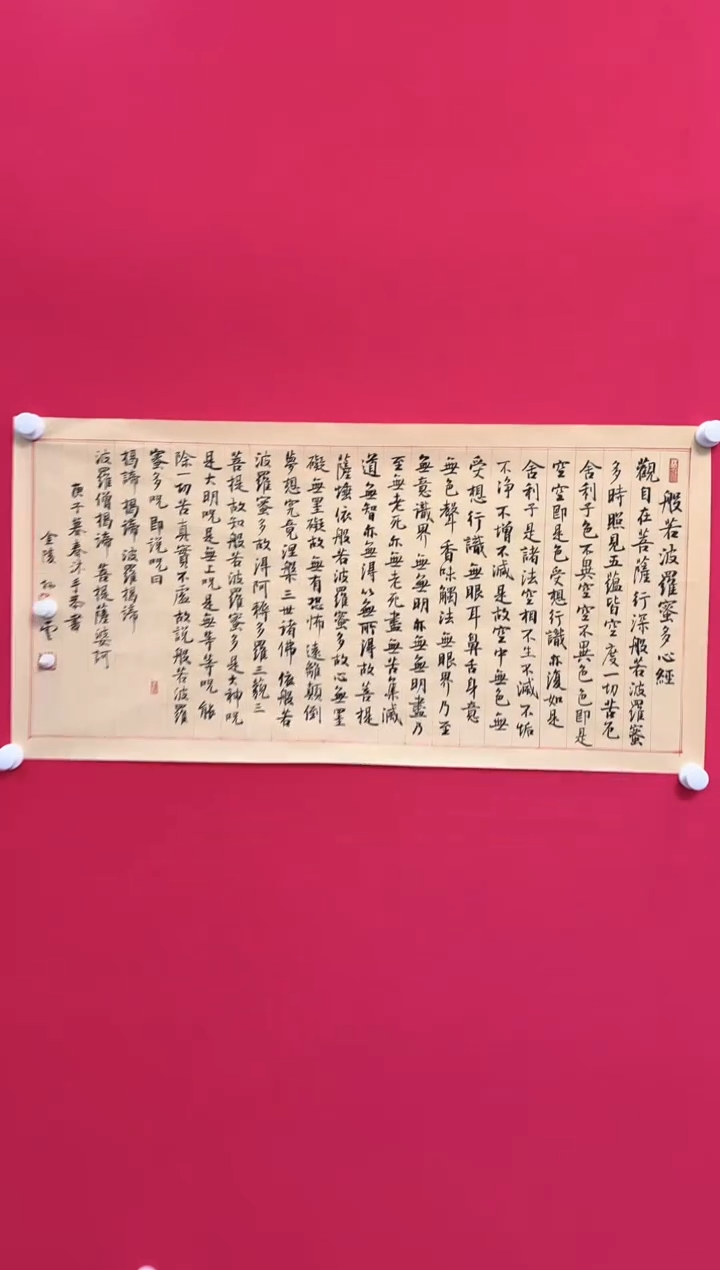 般若波羅蜜多心經
觀自在菩薩行深般若波羅蜜
多時照見五蘊皆空度一切苦厄
舍利子色不異空空不異色色即是
空空即是色受想行識亦復如是
舍利子是諸法空相不生不滅不垢
不净不增不滅是故空中無色無
受想行識無眼耳鼻舌身意
無色聲香味觸法無眼界乃至
無意識界無無明亦無無明盡乃
至無老死亦無老死盡無苦集滅
道無智亦無得以無所得故菩提
薩埵依般若波羅蜜多故心無罣
礙無罣礙故無有恐怖遠離顛倒
夢想究竟涅槃三世諸佛依般若
波羅蜜多故得阿耨多羅三藐三
菩提故知般若波羅蜜多是大神呪
是大明呪是無上呪是無等等呪能
除一切苦真實不虛故說般若波羅
蜜多呪即說呪曰
揭諦揭諦波羅揭諦
波羅僧揭諦菩提薩婆訶
庚子暮春沐手恭書
金陵